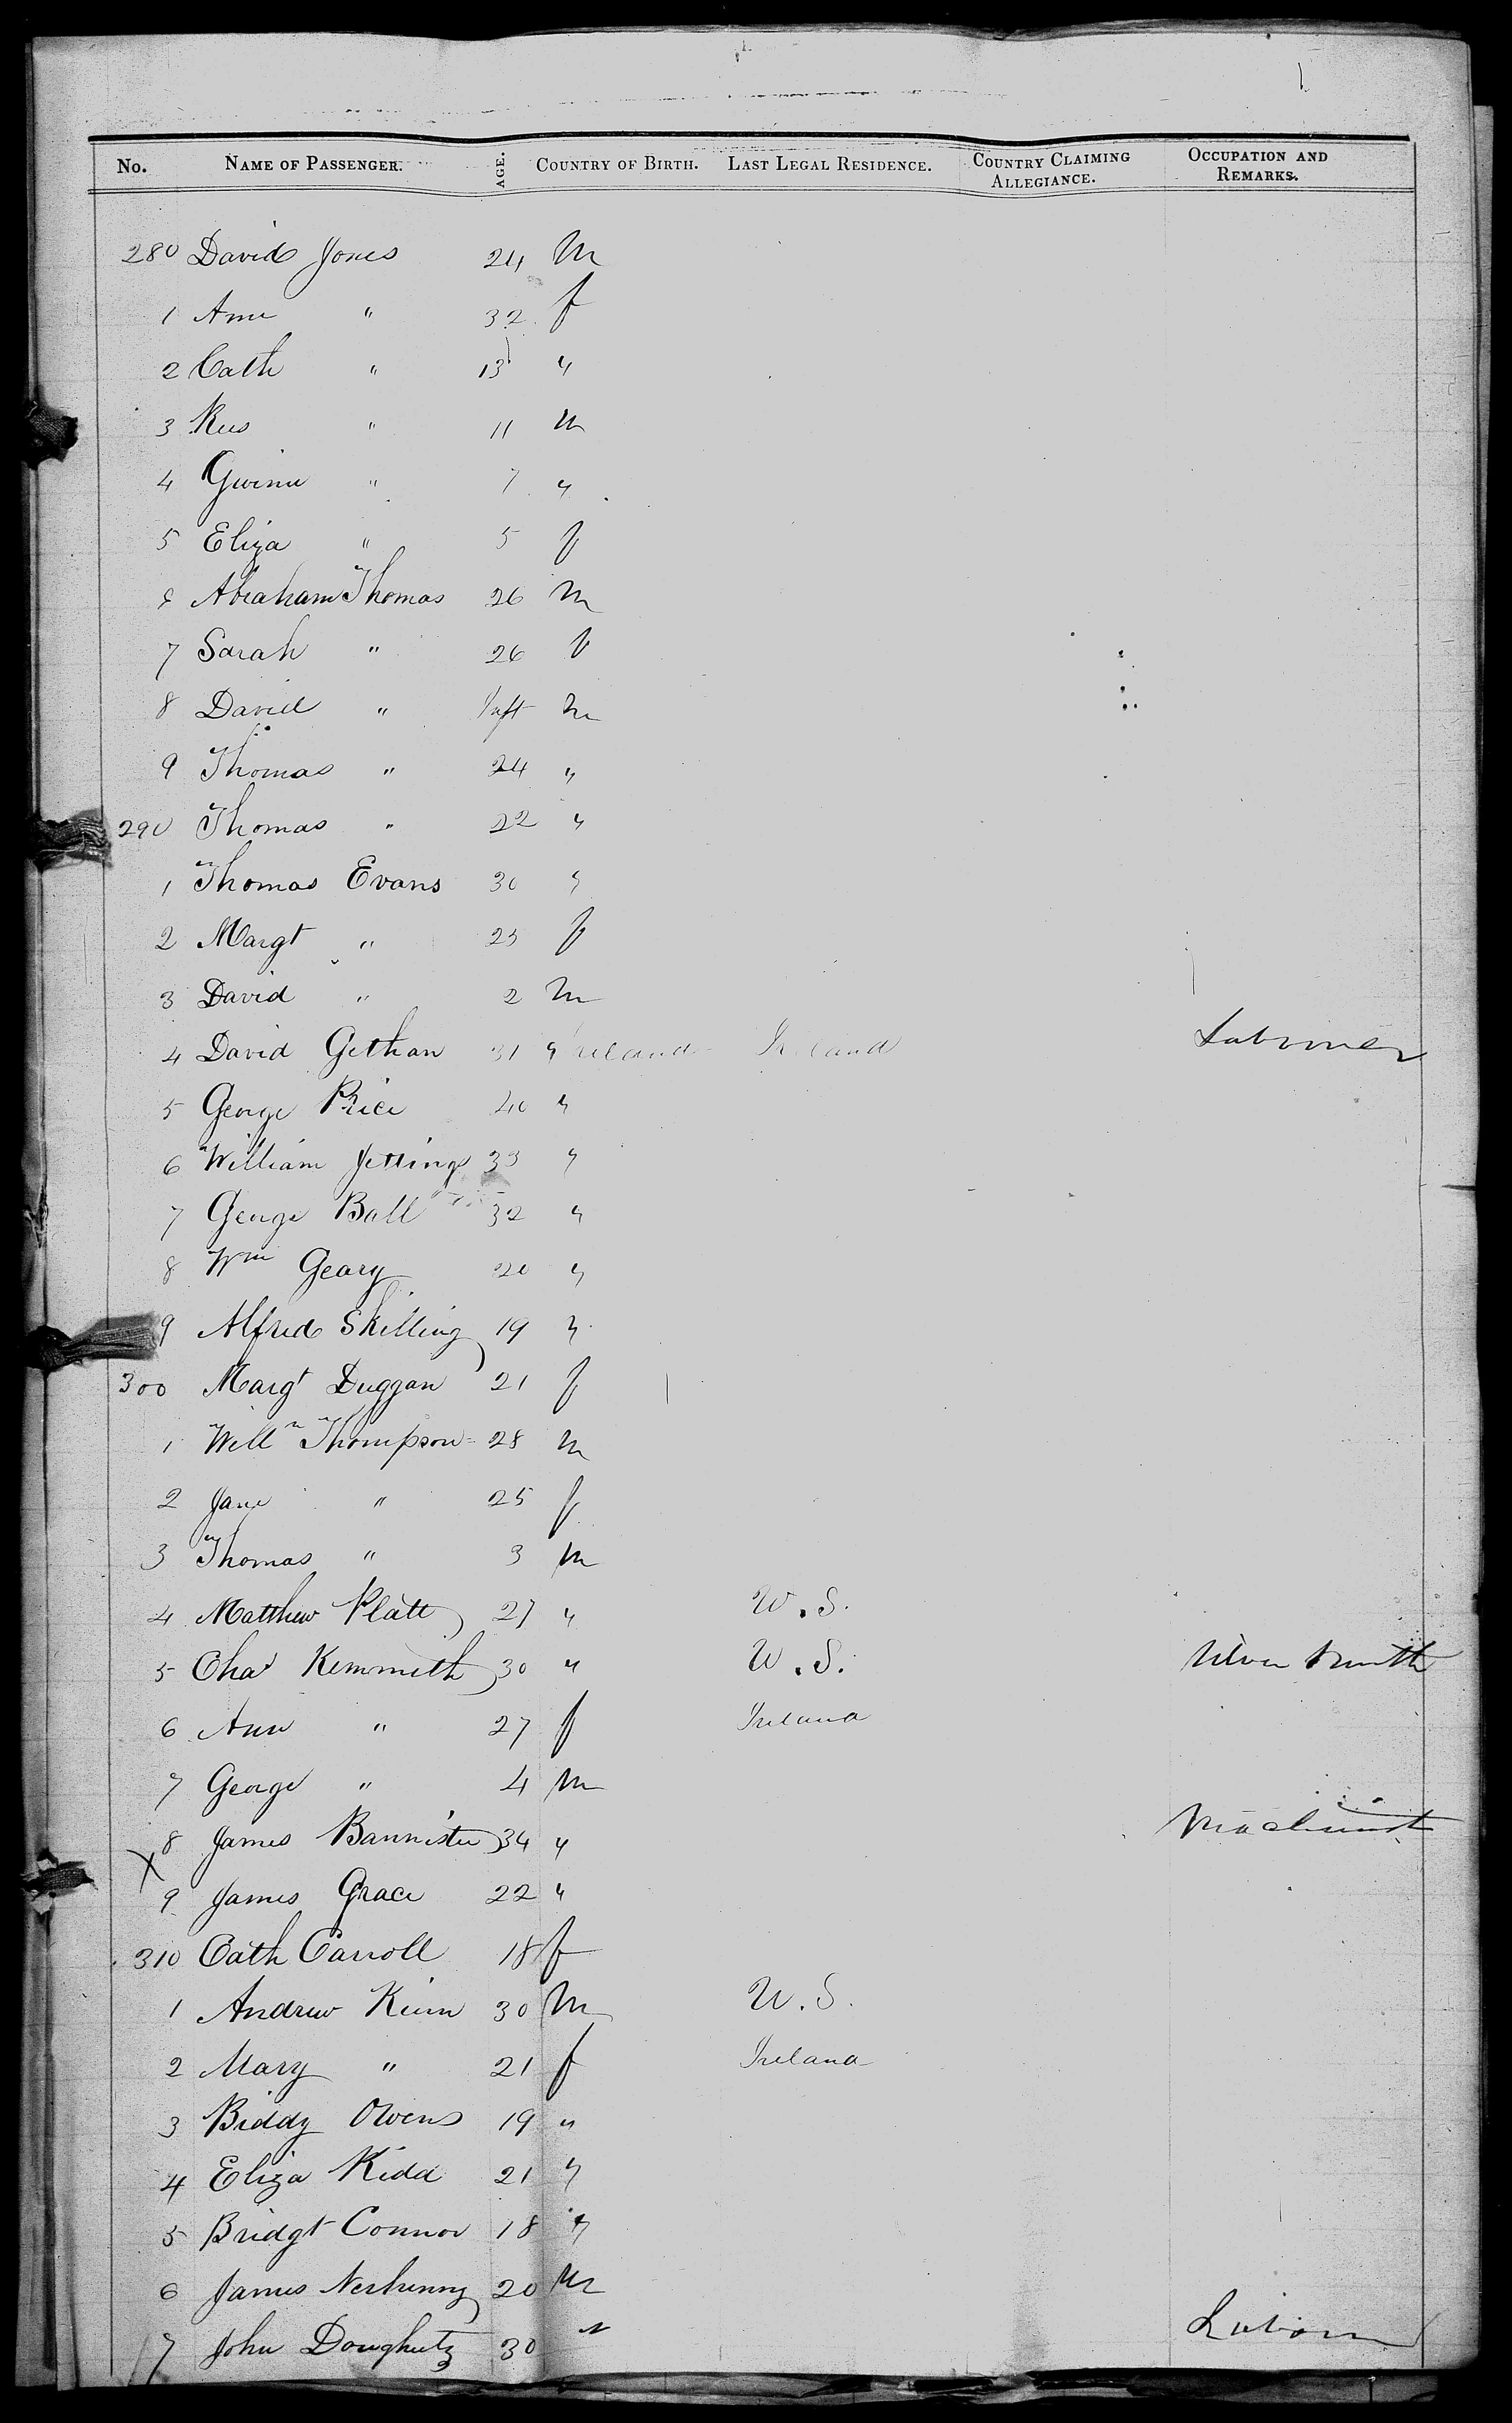 No. NAME OF PASSENGER. AGE. COUNTRY OF BIRTH. LAST LEGAL RESIDENCE. COUNTRY CLAIMING ALLEGIANCE. OCCUPATION AND REMARKS.
280 David Jones 24 m
1 Ann " 32 f
2 Cath " 13 "
3 Rees " 11 m
4 Gwinn " 7 "
5 Eliza " 5 f
6 Abraham Thomas 26 m
7 Sarah " 26 f
8 David " Inft m
9 Thomas " 24 "
290 Thomas " 22 "
1 Thomas Evans 30 "
2 Margt " 25 f
3 David " 2 m
4 David Gethan 31 " Ireland Ireland Labourer
5 George Price 40 "
6 William Jettings 33 "
7 George Ball 32 "
8 Wm Geary 20 "
9 Alfred Skilling 19 "
300 Margt Duggan 21 f
1 Willm Thompson 28 m
2 Jane " 25 f
3 Thomas " 3 m
4 Matthew Platt 27 " U.S.
5 Chas Kemmith 30 " U.S. Silver Smith
6 Ann " 27 f Ireland
7 George " 4 m
8 James Bannister 34 " Machinist
X
9 James Grace 22 "
310 Cath Carroll 18 f
1 Andrew Keirn 30 m U.S.
2 Mary " 21 f Ireland
3 Biddy Owens 19 "
4 Eliza Kidd 21 "
5 Bridgt Connor 18 "
6 James Nerhenny 20 m
7 John Doughuty 30 " Labour